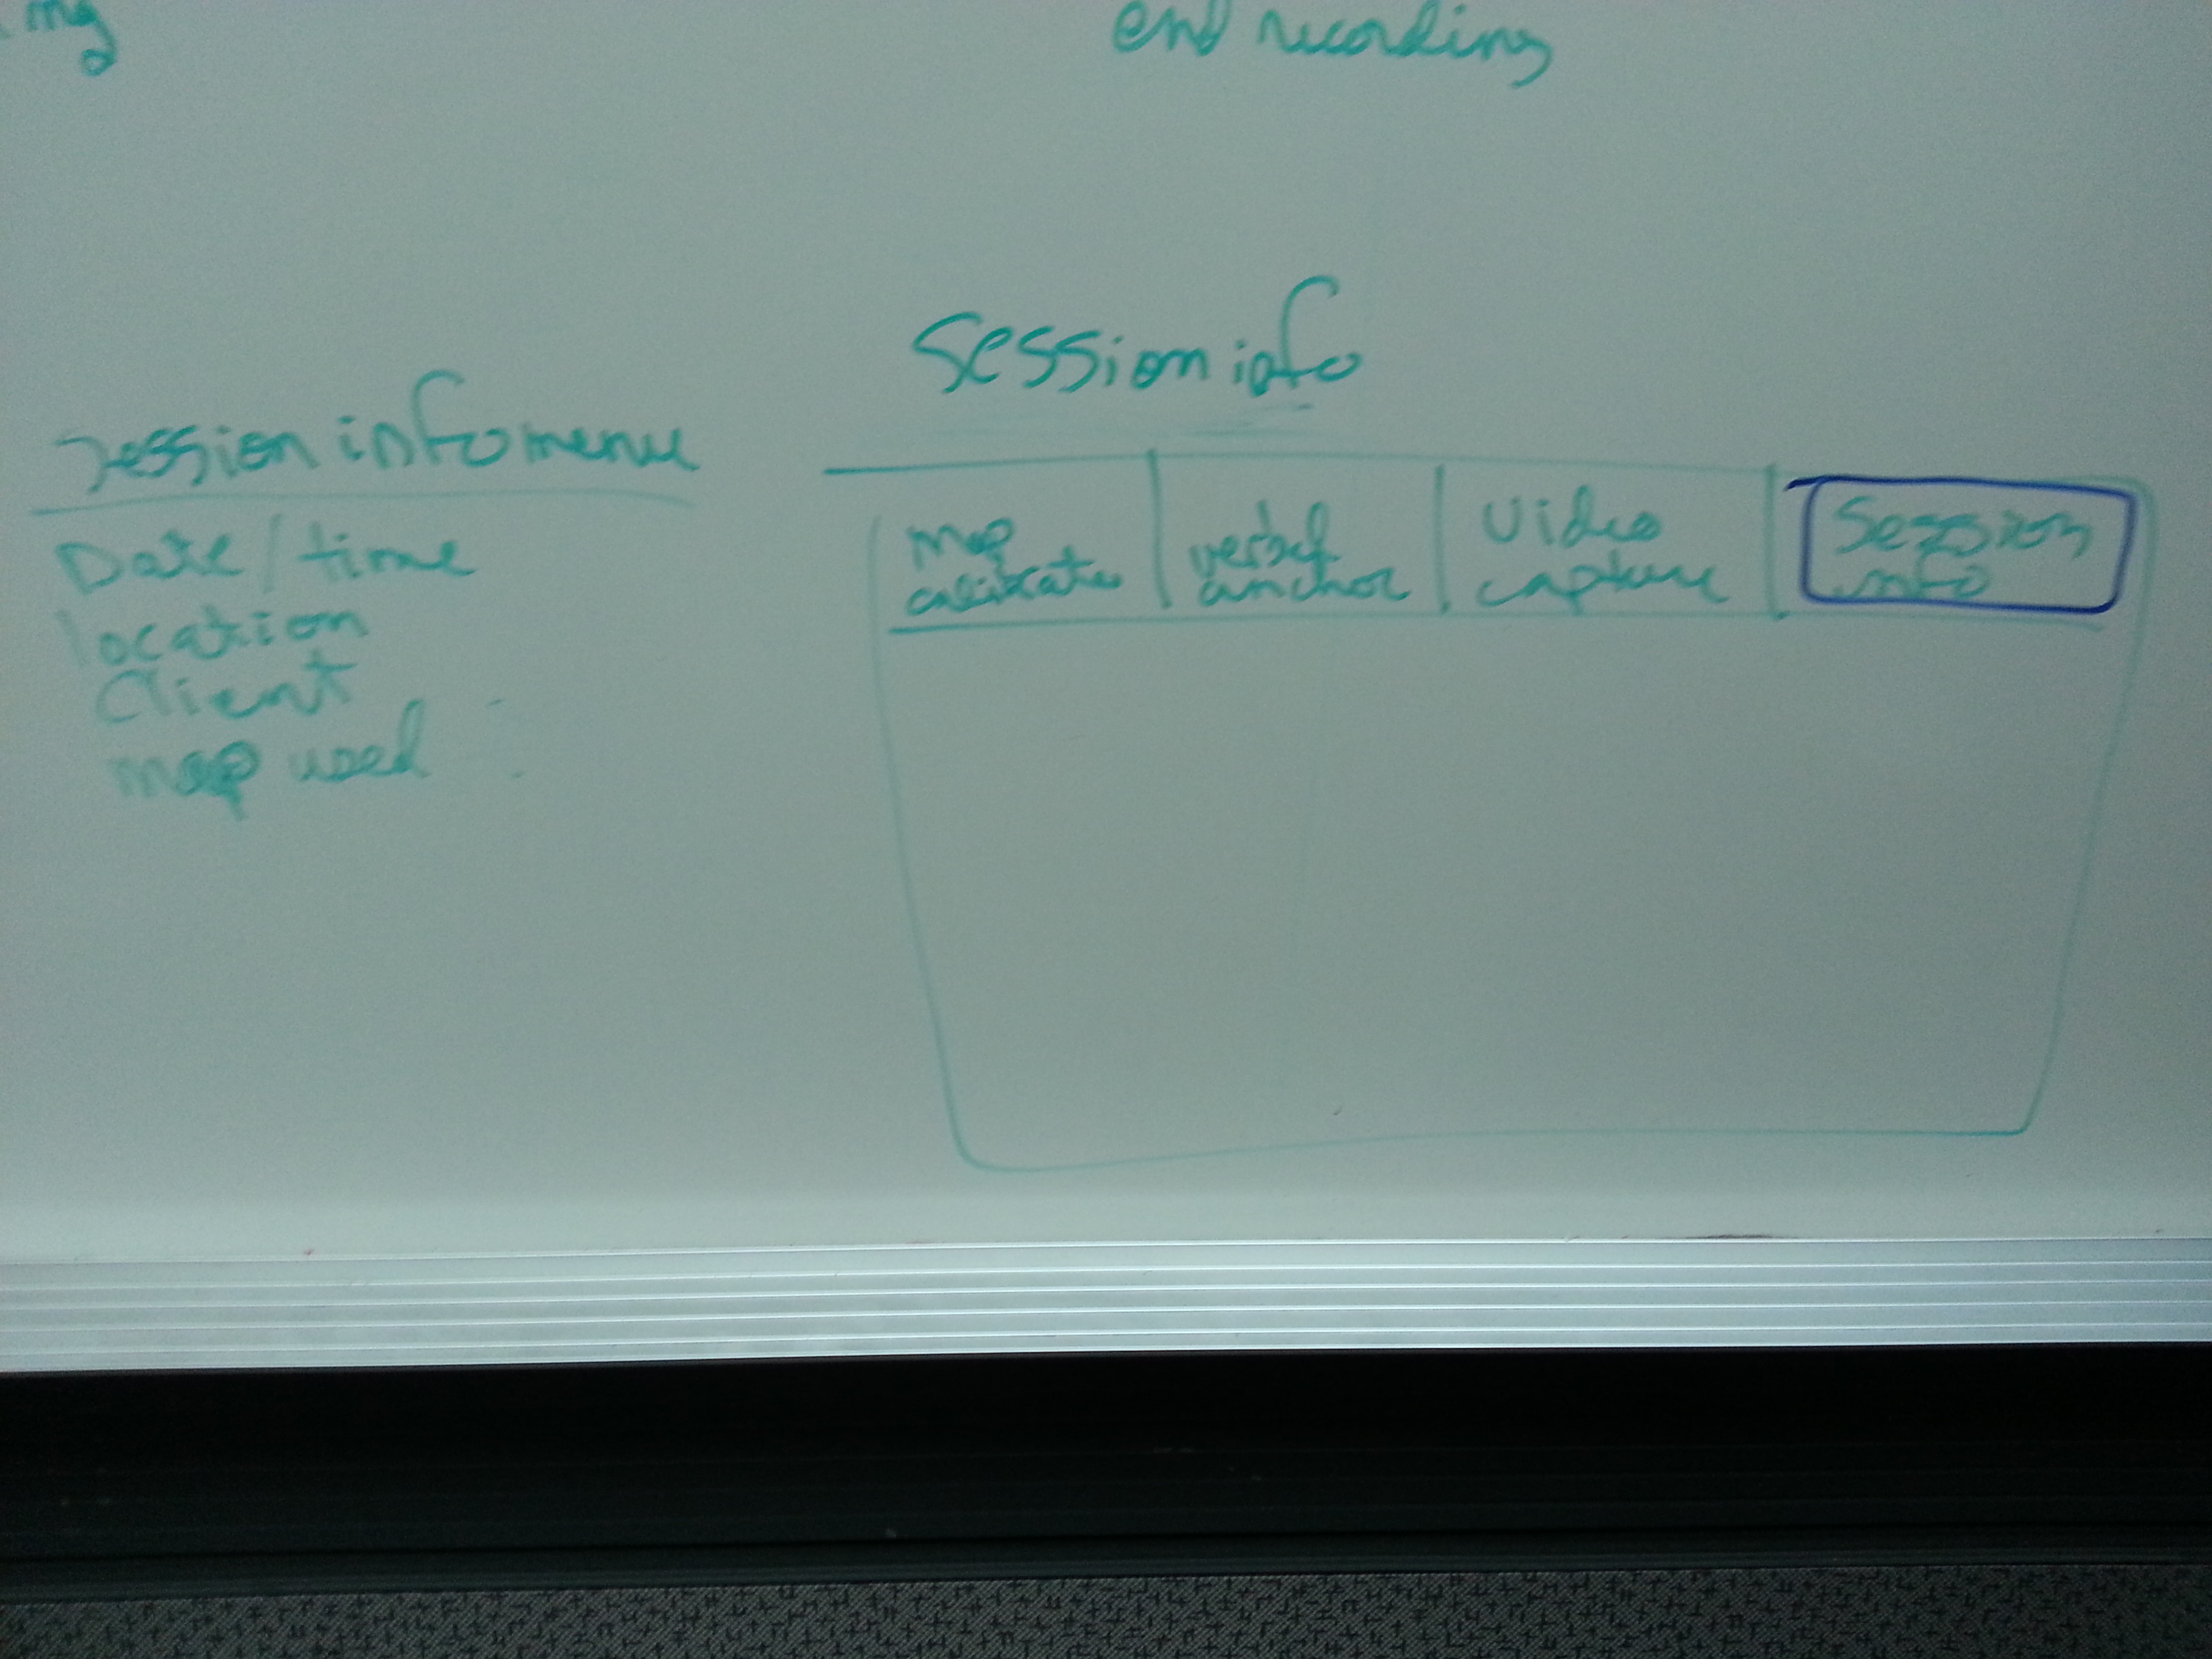 end recording
Session info
Session info menu
Date/time
location
Client
map used
map
calibrate
verbal
anchor
Video
capture
Session
info